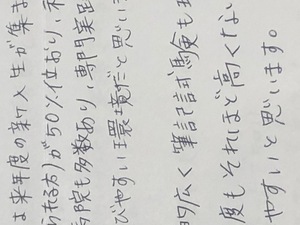 は来年度の新入生が集ま
られる方)が50%位おり、
院も多数あり、専門実
びやすい環境だと思い
幅広く筆記試験も
度もそれほど高くな
やすいと思います。